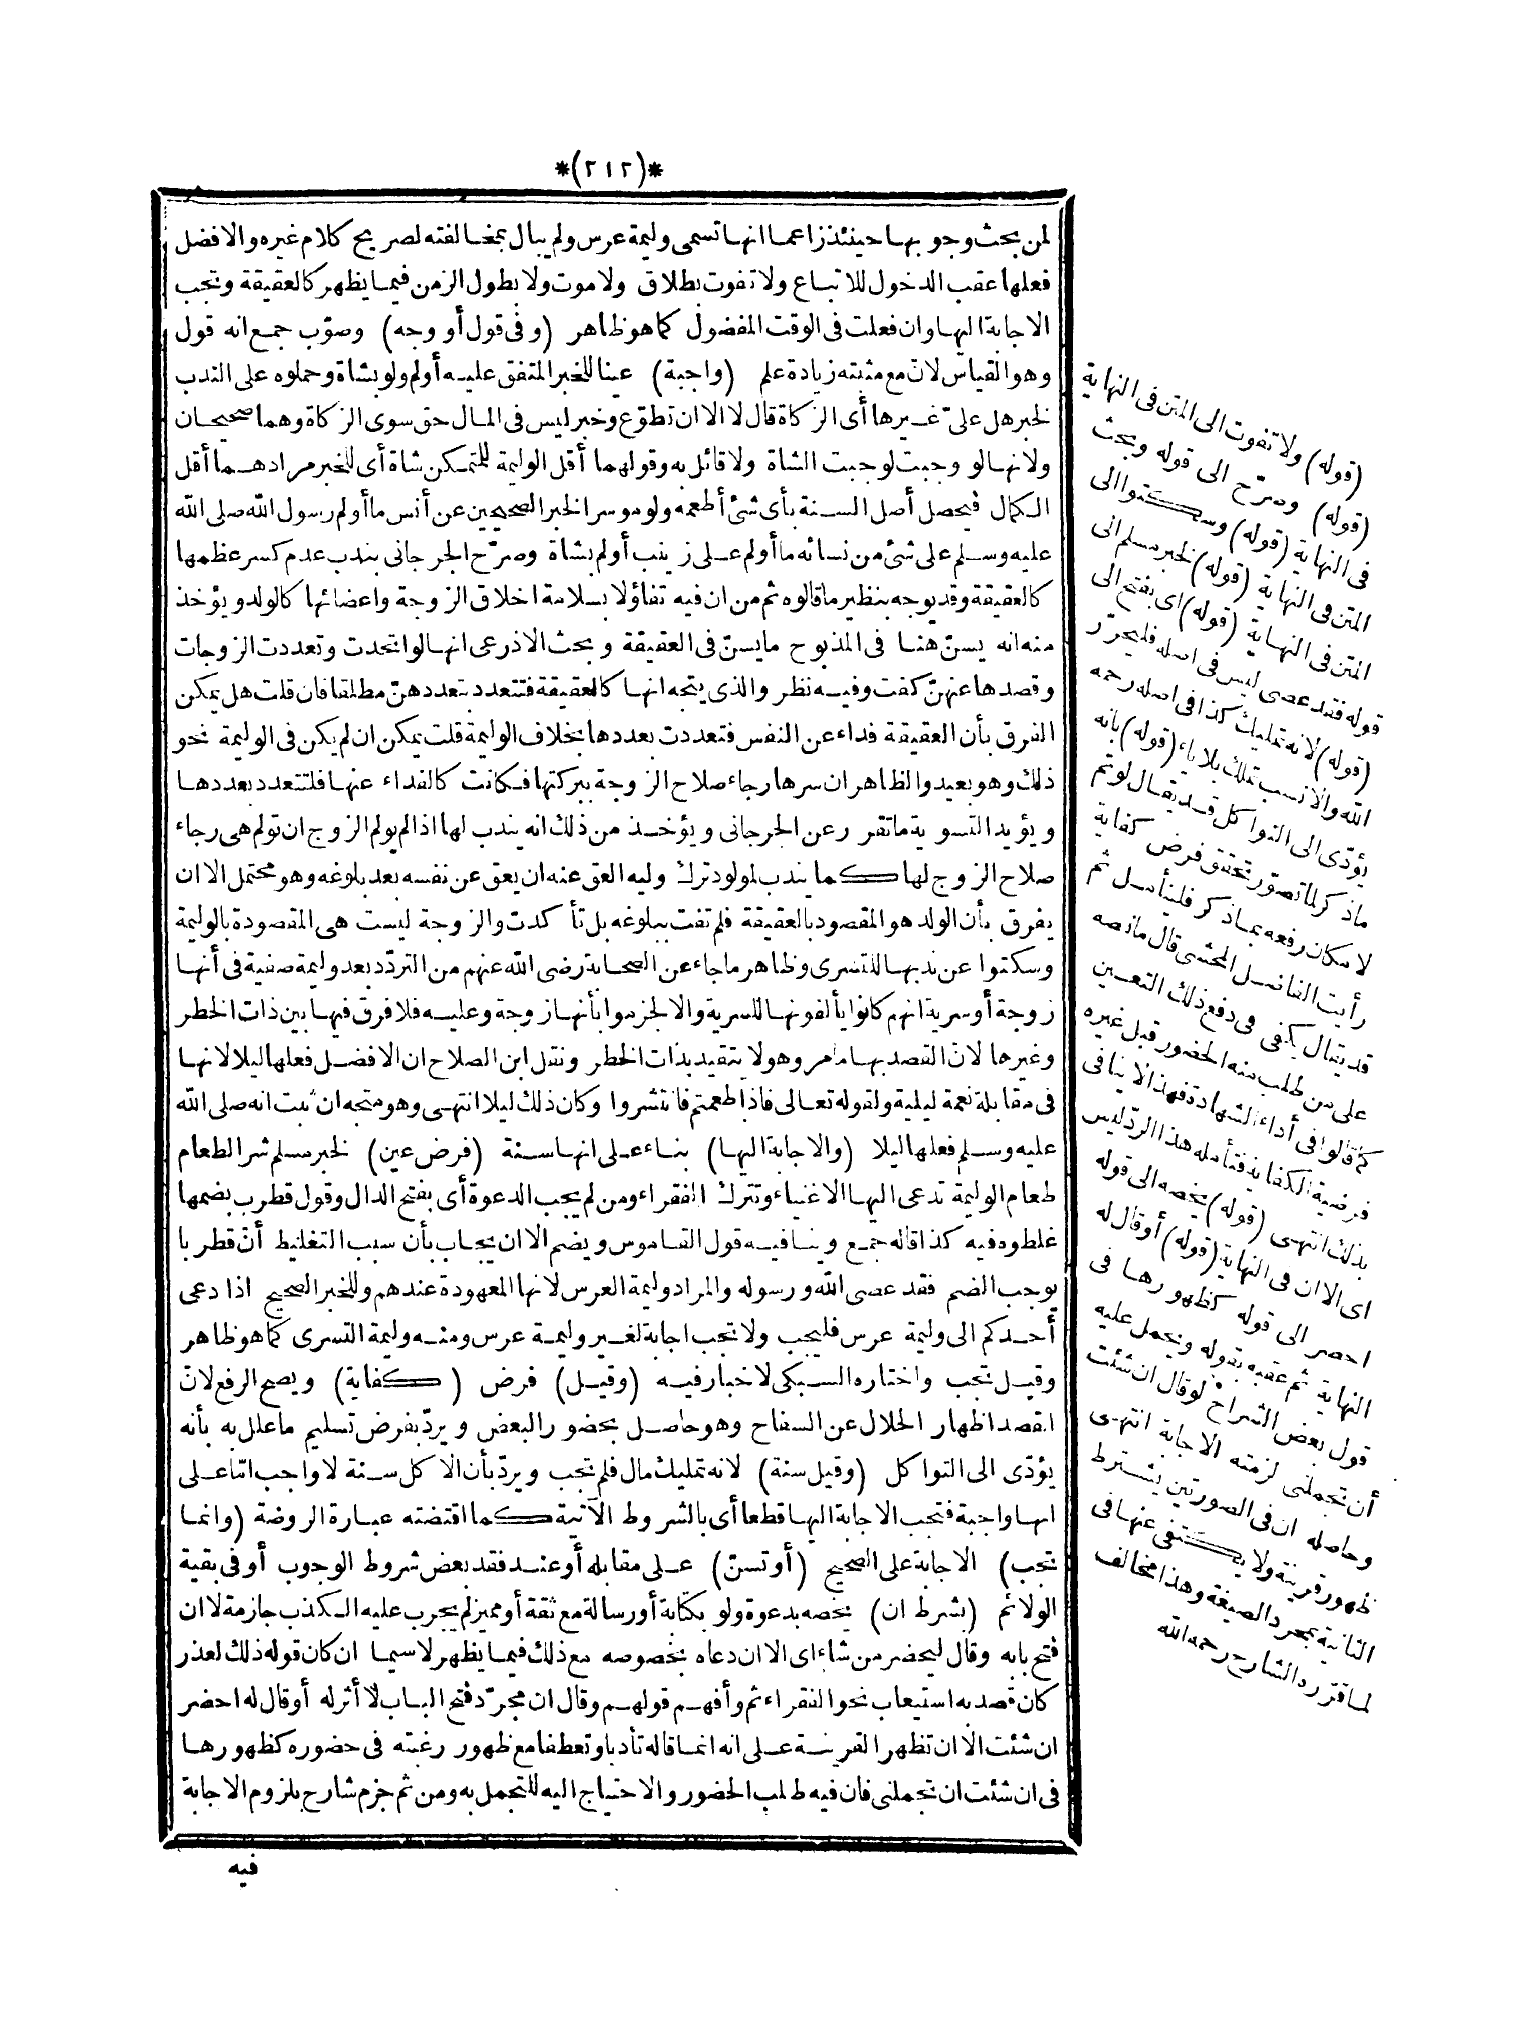 *(٢١٢)*
لمن بحث وجوبها حينئذ زاعما انها تسمى وليمة عرس ولم يبال بمخالفته لصريح كلام غيره والافضل
فعلها عقب الدخول للاتباع ولا تفوت بطلاق ولا موت ولا بطول الزمن فيما يظهر كالعقيقة وتجب
الاجابة اليها وان فعلت فى الوقت المفضول كما هو ظاهر (وفى قول أو وجه) وصوّب جمع انه قول
وهو القياس لانّ مع مثبته زيادة علم (واجبة) عينا للخبر المتفق عليه أولم ولو بشاة وحملوه على الندب
لخبر هل علىّ غيرها أى الزكاة قال لا الا ان تطوّع وخبر ليس فى المال حق سوى الزكاة وهما صحيحان
ولانها لو وجبت لوجبت الشاة ولا قائل به وقولهما أقل الوليمة للمتمكن شاة أى للخبر مرادهما أقل
الكمال فيحصل أصل السنة بأى شئ أطعمه ولو موسرا لخبر الصحيحين عن أنس ما أولم رسول الله صلى الله
عليه وسلم على شئ من نسائه ما أولم على زينب أولم بشاة وصرّح الجرجانى بندب عدم كسر عظمها
كالعقيقة وقد يوجه بنظير ما قالوه ثم من ان فيه تفاؤلا بسلامة اخلاق الزوجة واعضائها كالولد ويؤخذ
منه انه يسنّ هنا فى المذبوح ما يسنّ فى العقيقة وبحث الاذرعى انها لو اتحدت وتعددت الزوجات
وقصدها عنهنّ كفت وفيه نظر والذى يتجه انها كالعقيقة فتتعدد بتعددهنّ مطلقا فان قلت هل يمكن
الفرق بأن العقيقة فداء عن النفس فتعددت بعددها بخلاف الوليمة قلت يمكن ان لم يكن فى الوليمة نحو
ذلك وهو بعيد والظاهر ان سرها رجاء صلاح الزوجة ببركتها فكانت كالفداء عنها فلتتعدد بعددها
ويؤيد التسوية ما تقرر عن الجرجانى ويؤخذ من ذلك انه يندب لها اذا لم يولم الزوج ان تولم هى رجاء
صلاح الزوج لها كما يندب لمولود ترك وليه العق عنه ان يعق عن نفسه بعد بلوغه وهو محتمل الا ان
يفرق بأن الولد هو المقصود بالعقيقة فلم تفت ببلوغه بل تأكدت والزوجة ليست هى المقصودة بالوليمة
وسكتوا عن ندبها للتسرى وظاهر ما جاء عن الصحابة رضى الله عنهم من التردّد بعد وليمة صفية فى أنها
زوجة أو سرية انهم كانوا يألفونها للسرية والا لجزموا بأنها زوجة وعليه فلا فرق فيها بين ذات الخطر
وغيرها لانّ القصد بها ما مر وهو لا يتقيد بذات الخطر ونقل ابن الصلاح ان الافضل فعلها ليلا لانها
فى مقابلة نعمة ليلية ولقوله تعالى فاذا طعمتم فانتشروا وكان ذلك ليلا انتهى وهو متجه ان ثبت انه صلى الله
عليه وسلم فعلها ليلا (والاجابة اليها) بناء على انها سنة (فرض عين) لخبر مسلم شر الطعام
طعام الوليمة تدعى اليها الاغنياء وتترك الفقراء ومن لم يجب الدعوة أى بفتح الدال وقول قطرب بضمها
غلطوه فيه كذا قاله جمع وينافيه قول القاموس ويضم الا ان يجاب بأن سبب التغليط أنّ قطربا
يوجب الضم فقد عصى الله ورسوله والمراد وليمة العرس لانها المعهودة عندهم وللخبر الصحيح اذا دعى
أحدكم الى وليمة عرس فليجب ولا تجب اجابة لغير وليمة عرس ومنه وليمة التسرى كما هو ظاهر
وقيل تجب واختاره السبكى لاخبار فيه (وقيل) فرض (كفاية) ويصح الرفع لانّ
القصد اظهار الحلال عن السفاح وهو حاصل بحضور البعض ويردّ بفرض تسليم ما علل به بأنه
يؤدّى الى التواكل (وقيل سنة) لانه تمليك مال فلم تجب ويردّ بأن الاكل سنة لا واجب امّا على
انها واجبة فتجب الاجابة اليها قطعا أى بالشروط الآتية كما اقتضته عبارة الروضة (وانما
تجب) الاجابة على الصحيح (أو تسنّ) على مقابله أو عند فقد بعض شروط الوجوب أو فى بقية
الولائم (بشرط ان) يخصه بدعوة ولو بكتابة أو رسالة مع ثقة أو مميز لم يجرب عليه الكذب جازمة لا ان
فتح بابه وقال ليحضر من شاء اى الا ان دعاه بخصوصه مع ذلك فيما يظهر لاسيما ان كان قوله ذلك لعذر
كان قصد به استيعاب نحو الفقراء ثم وأفهم قولهم وقال ان مجرّد فتح الباب لا أثر له أو قال له احضر
ان شئت الا ان تظهر القرينة على انه انما قاله تأدبا وتعطفا مع ظهور رغبته فى حضوره كظهورها
فى ان شئت ان تجملنى فان فيه طلب الحضور والاحتياج اليه للتجمل به ومن ثم جزم شارح بلزوم الاجابة
فيه
(قوله) ولا تفوت الى المتن فى النهاية
(قوله) وصرّح الى قوله وبحث
فى النهاية (قوله) وسكتوا الى
المتن فى النهاية (قوله) لخبر مسلم الى
المتن فى النهاية (قوله) اى بفتح الى
قوله فقد عصى ليس فى اصله فليحرّر
(قوله) لانه تمليك كذا فى اصله رحمه
الله والانسب تملك بلا ياء (قوله) بانه
يؤدّى الى التواكل قد يقال لو تم
ما ذكر لما تصوّر تحقق فرض كفاية
لا مكان رفعه بما ذكر فليتأمل ثم
رأيت الفاضل المحشى قال ما نصه
قد يقال يكفى فى دفع ذلك التعين
على من طلب منه الحضور قبل غيره
كما قالوا فى أداء الشهادة فهذا لا ينافى
فرضية الكفاية فتأمله هذا الردّ ليس
بذلك انتهى (قوله) يخصه الى قوله
اى الا ان فى النهاية (قوله) أو قال له
احضر الى قوله كظهورها فى
النهاية ثم عقبه بقوله ويحمل عليه
قول بعض الشراح لو قال ان شئت
أن تجملنى لزمته الاجابة انتهى
وحاصله ان فى الصورتين يشترط
ظهور قرينة ولا يكتفى عنها فى
الثانية بمجرد الصيغة وهذا مخالف
لما قرره الشارح رحمه الله